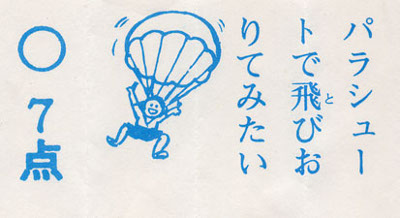 パラシュー
トで飛びお
りてみたい
と
○ 7点